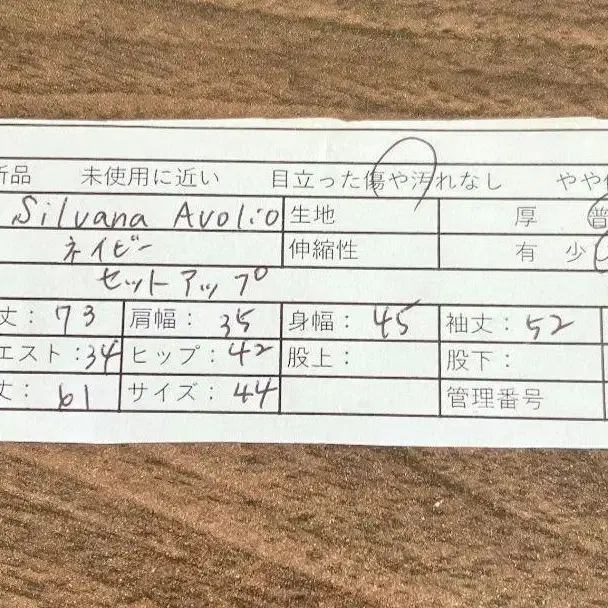 新品 未使用に近い 目立った傷や汚れなし やや
Silvana Avolio 生地 厚 普
ネイビー 伸縮性 有 少
セットアップ
丈: 73 肩幅: 35 身幅: 45 袖丈: 52
エスト: 34 ヒップ: 42 股上: 股下:
丈: 61 サイズ: 44 管理番号